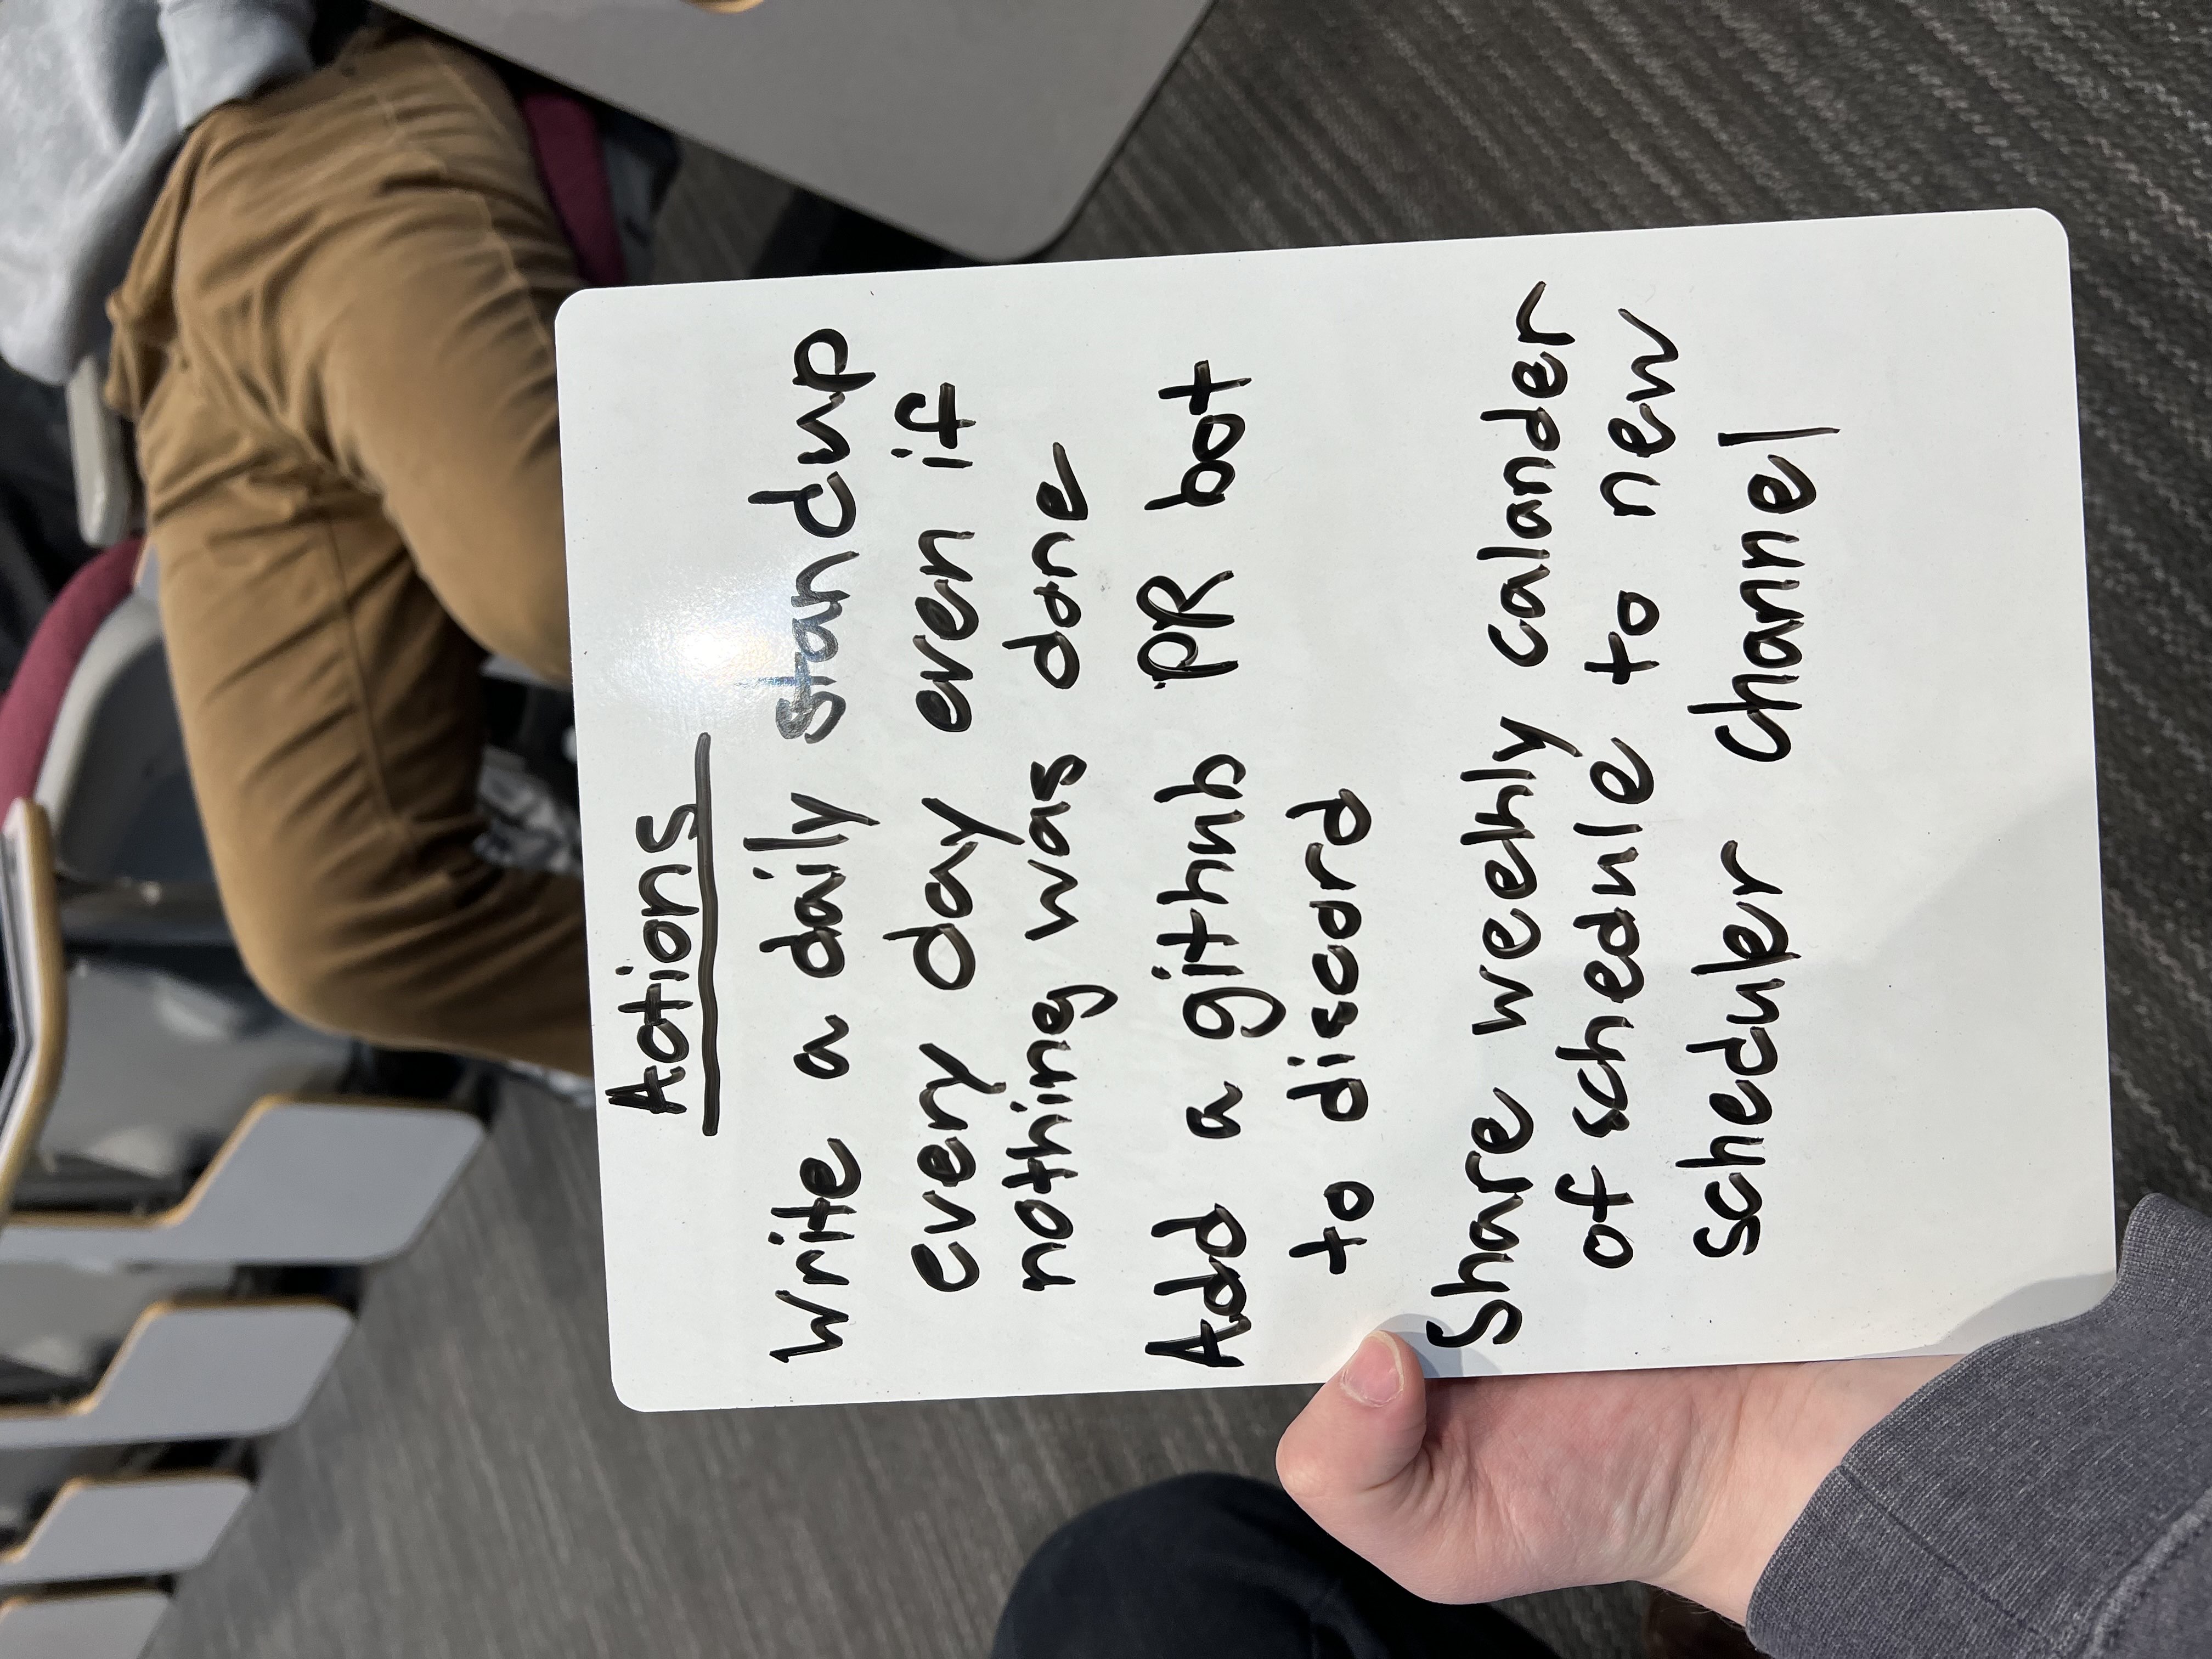 Actions
Write a daily standup
every day even if
nothing was done
Add a github PR bot
to discord
Share weekly calander
of schedule to new
scheduler channel